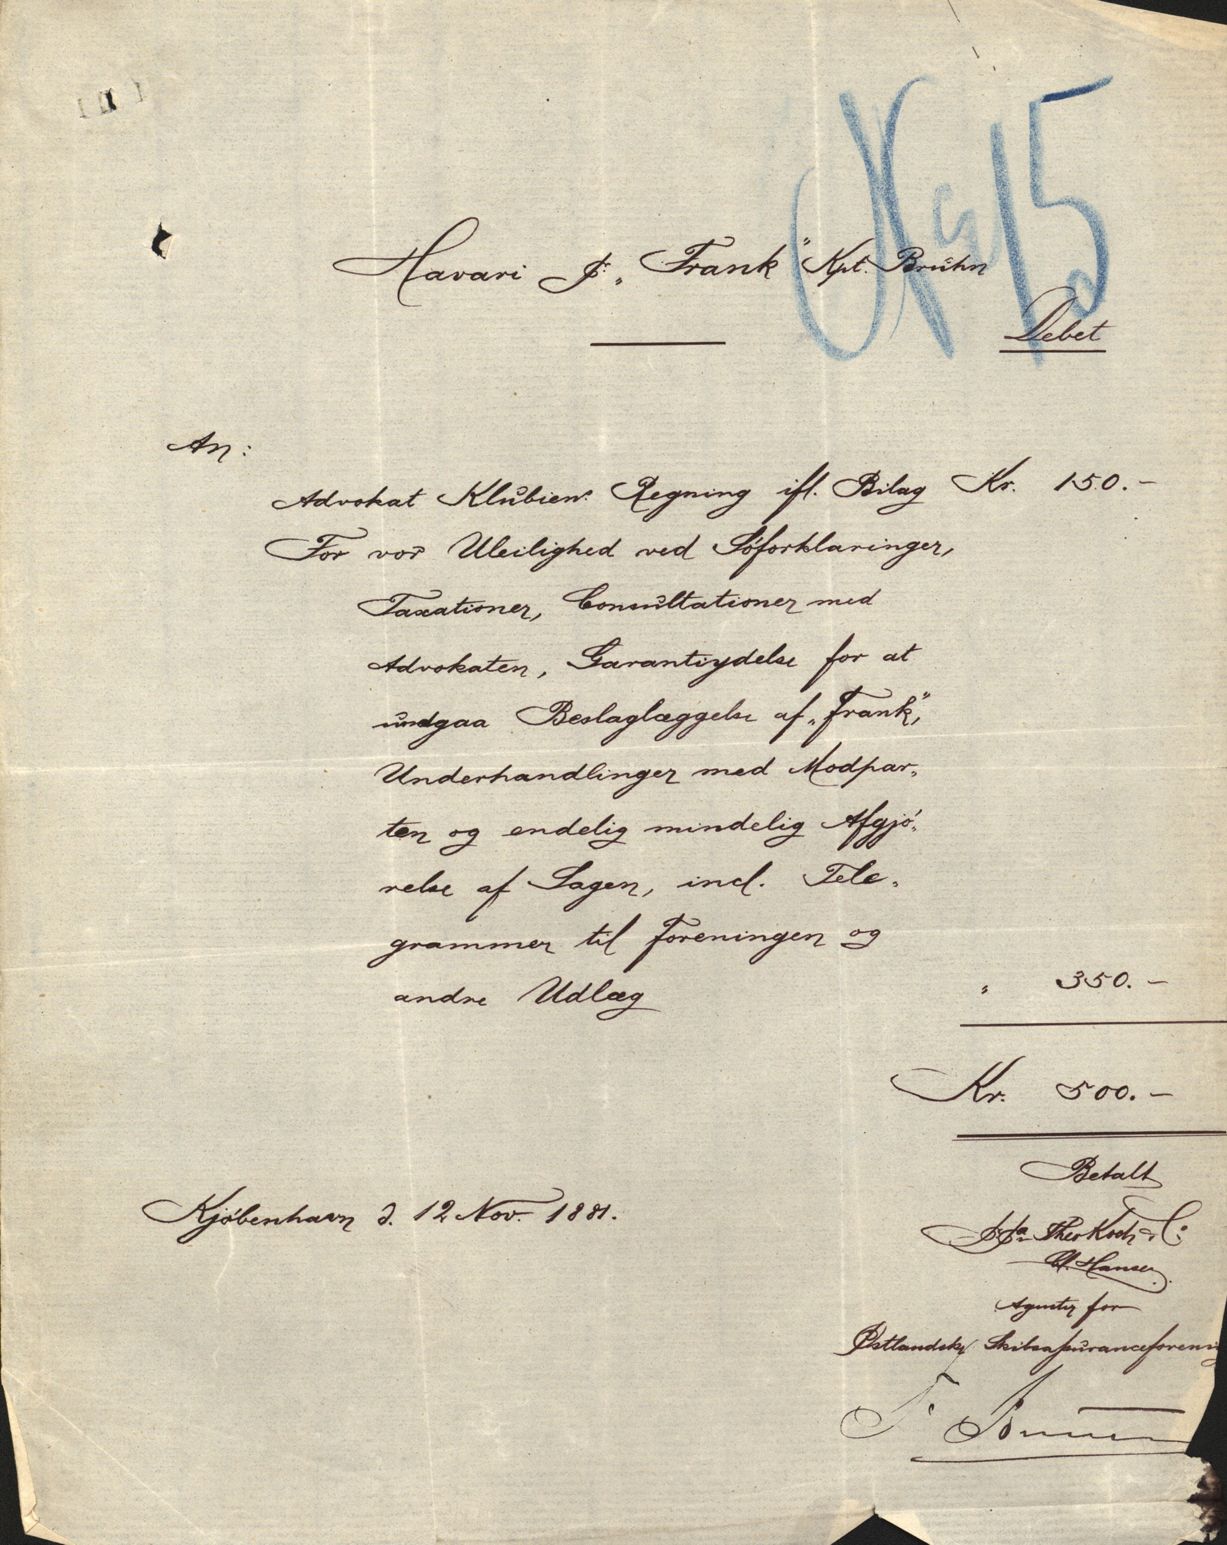 No 15
Havari p. „Frank" Kpt. Bruhn
Debet
An:
Advokat Klubiens Regning ifl. Bilag Kr. 150.-
For vor Uleilighed ved Søforklaringer,
Taxationer, Consultationer med
Advokaten, Garantiydelse for at
undgaa Beslaglæggelse af „Frank",
Underhandlinger med Modpar-
ten og endelig mindelig Afgjø-
relse af Sagen, incl. Tele-
grammer til Foreningen og
andre Udlæg " 350.-
Kr. 500.-
Betalt
Kjøbenhavn d. 12 Nov. 1881.
Theo Koch & Co
Hansen
Agenter for
Østlandske Skibsassuranceforening